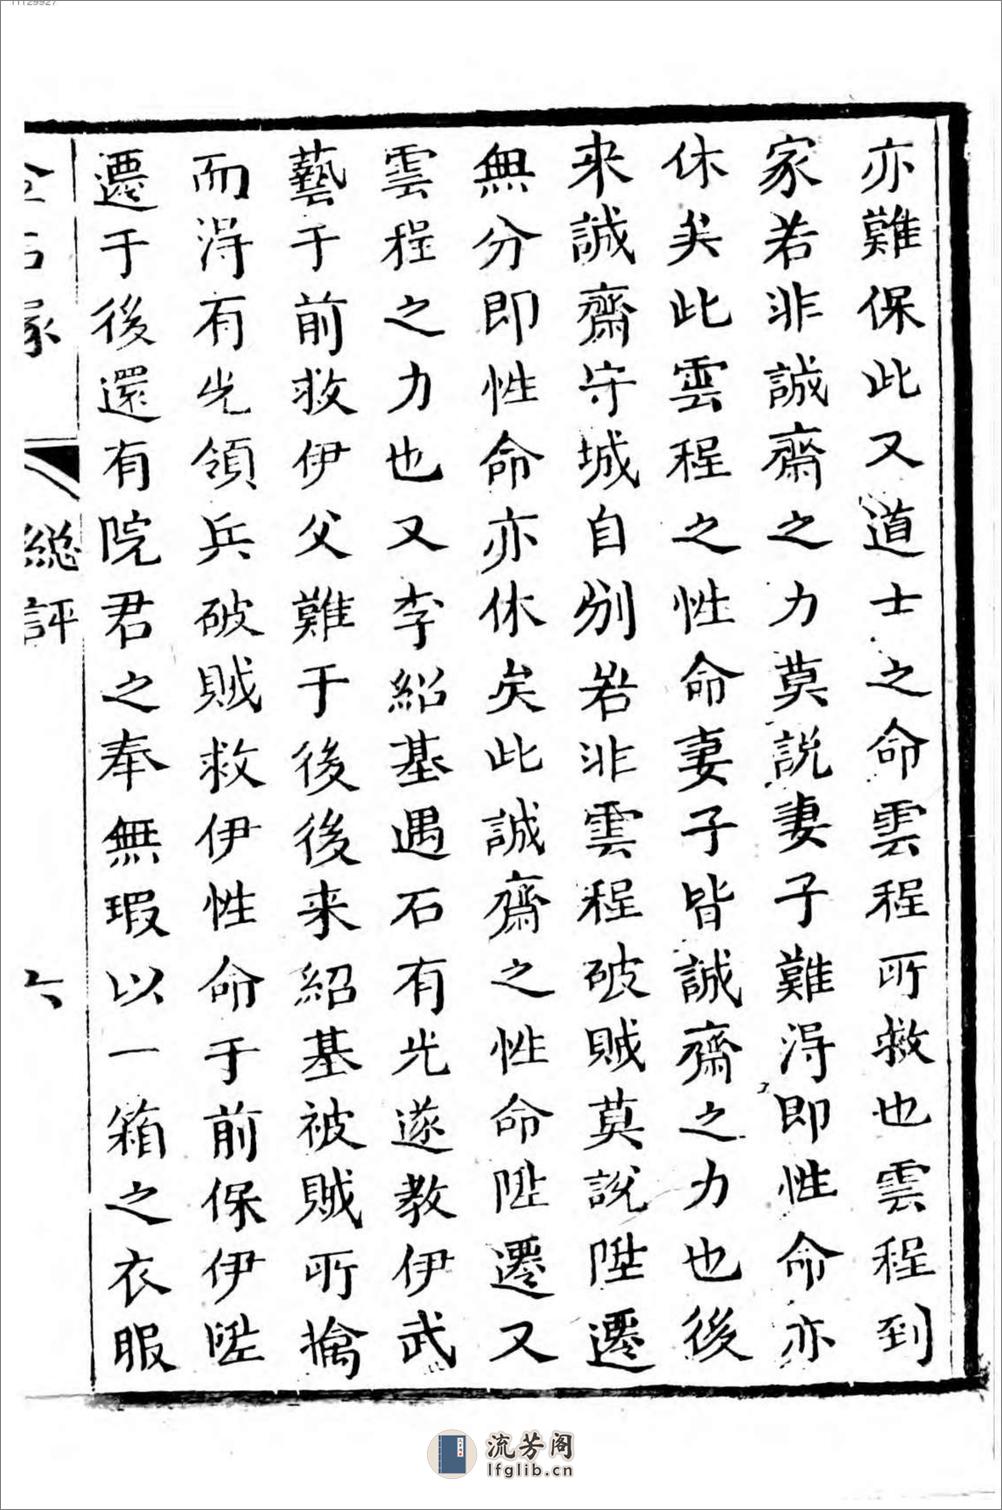 11129927
亦難保此又道士之命雲程所救也雲程到
家若非誠齋之力莫說妻子難得即性命亦
休矣此雲程之性命妻子皆誠齋之力也後
来誠齋守城自刎若非雲程破賊莫說陞遷
無分即性命亦休矣此誠齋之性命陞遷又
雲程之力也又李紹基遇石有光遂教伊武
藝于前救伊父難于後後来紹基被賊所擒
而得有光領兵破賊救伊性命于前保伊陞
遷于後還有院君之奉無瑕以一箱之衣服
總評
六
流芳阁
lfglib.cn